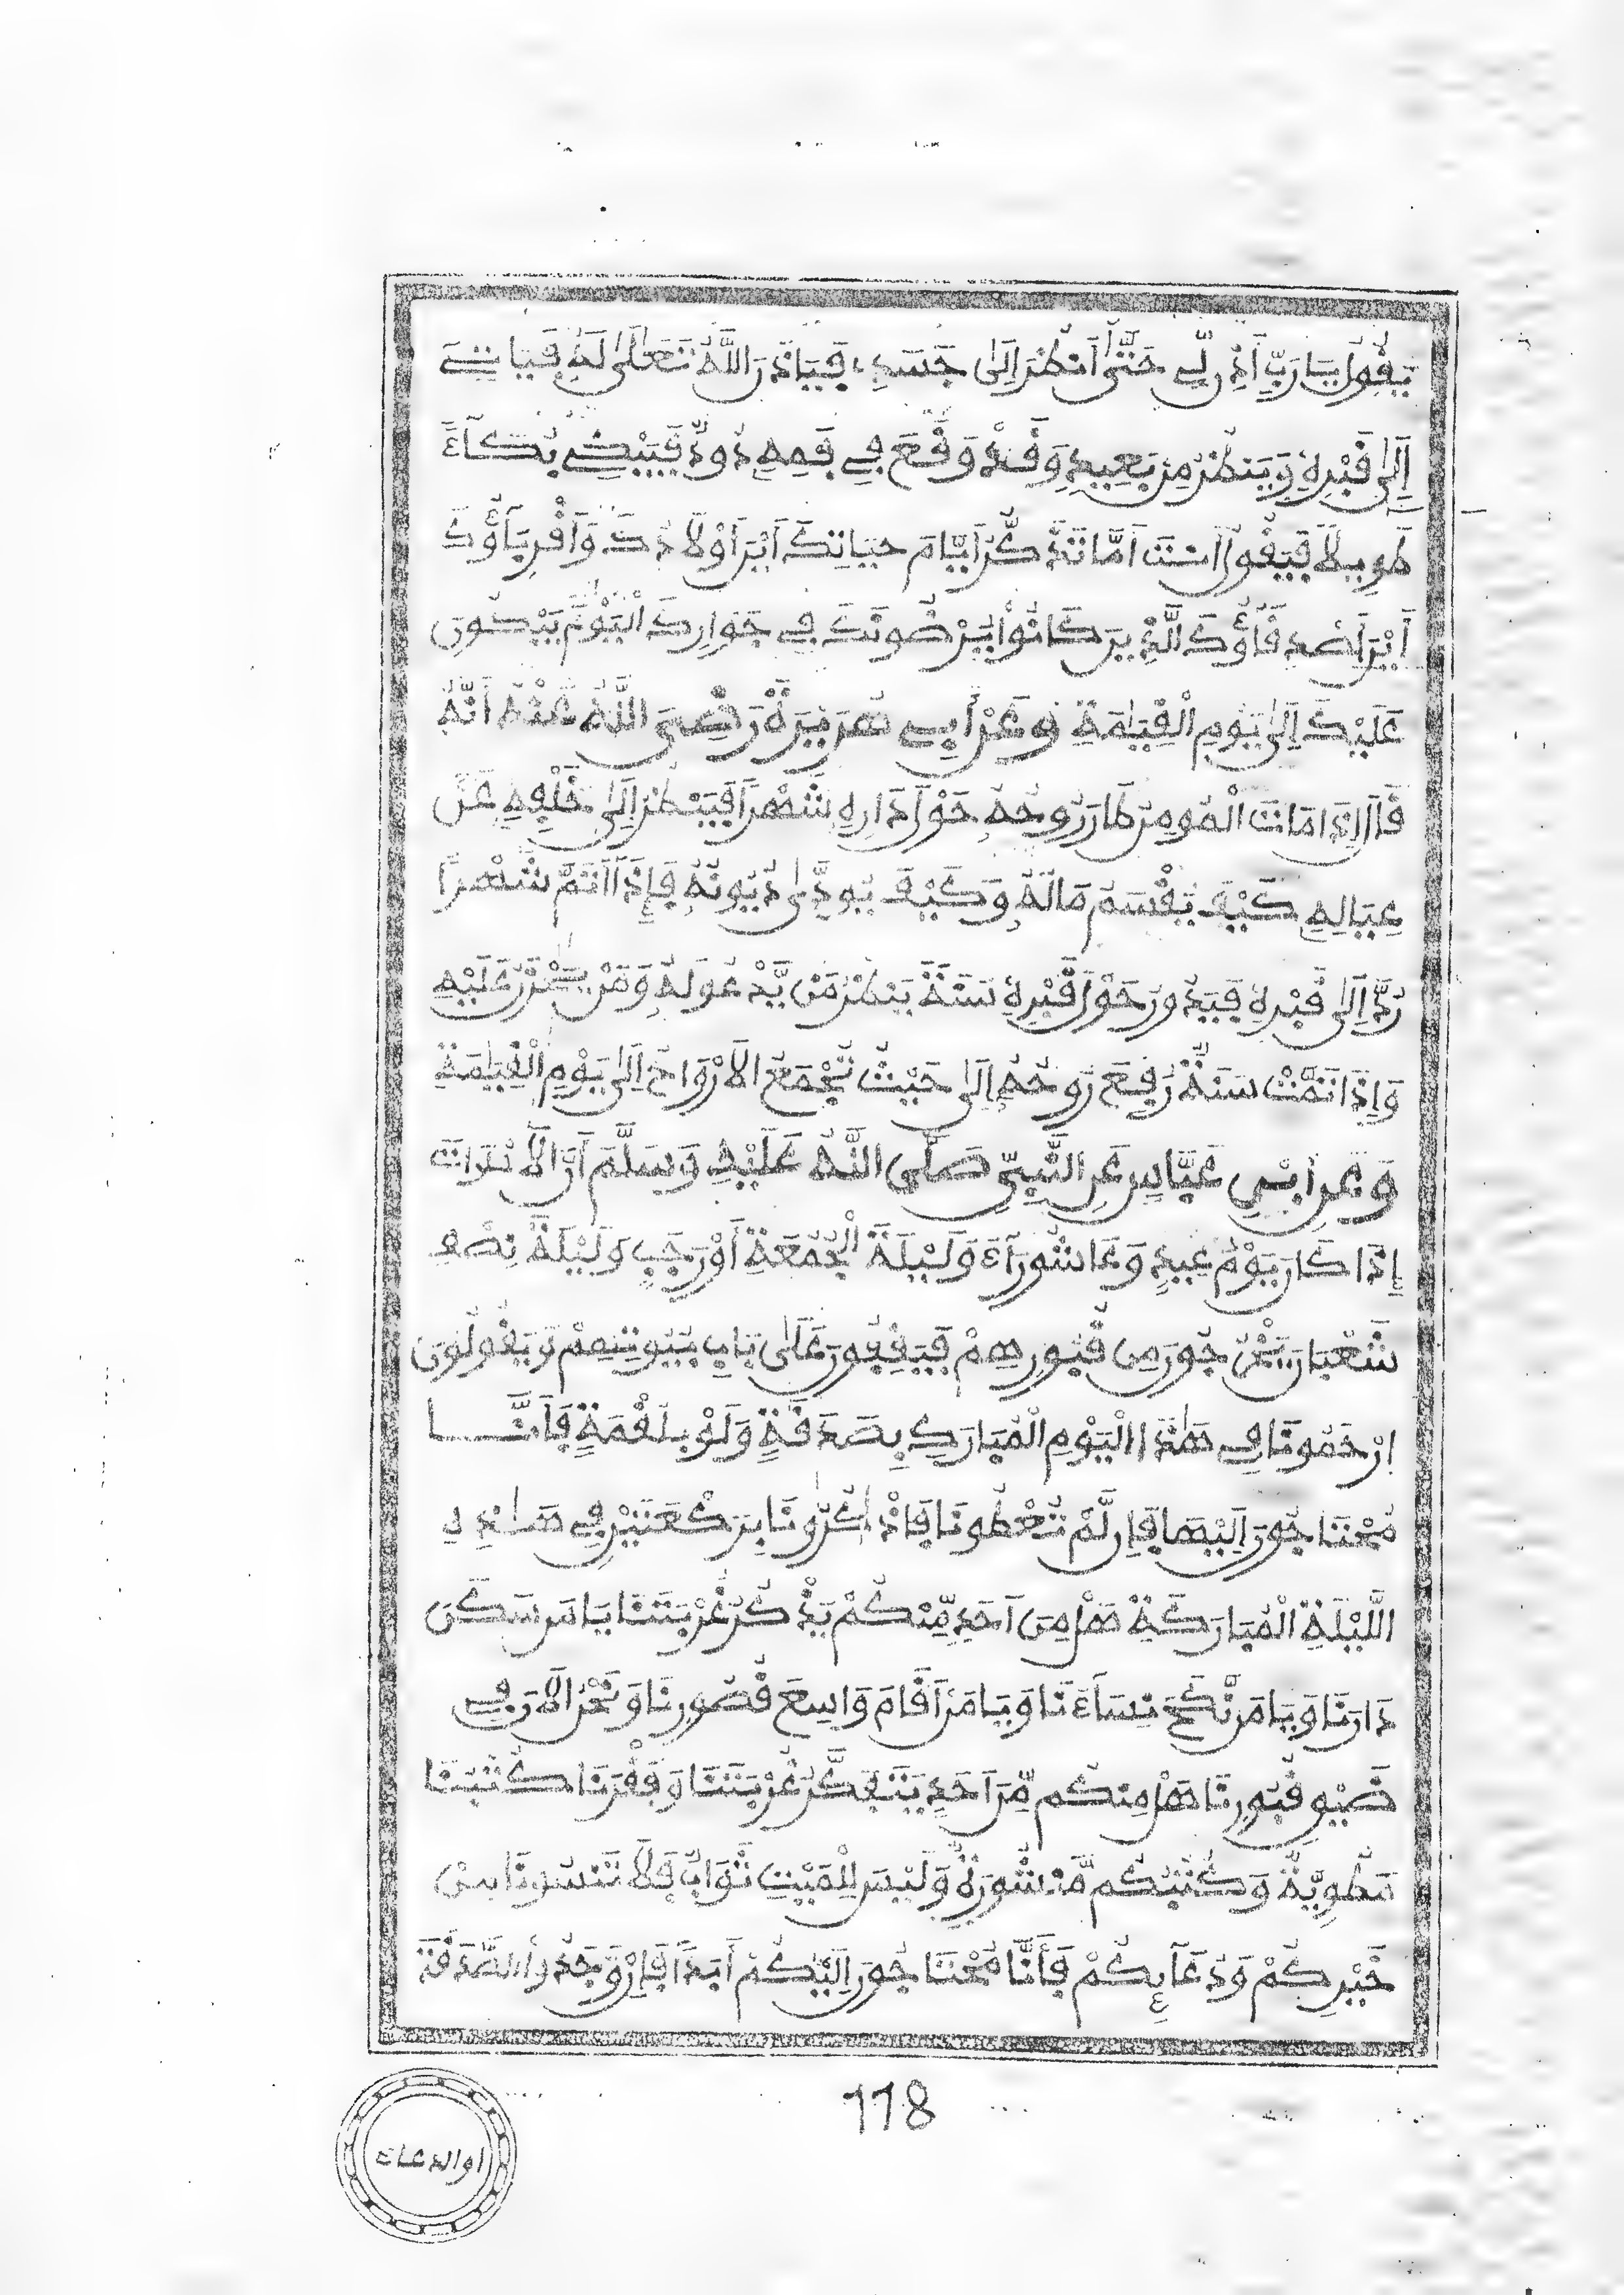 يَقُولُ يَارَبِّ أَذَنْ لِّي حَتَّىٰ أَنظُرَ إِلَىٰ جَسَدِي فَيَاذَنُ اللَّهُ تَعَلَىٰ لَهُ فَيَاتِي
إِلَىٰ قَبْرِهِ وَيَنظُرُ مِنۢ بَعِيدٍ وَقَدْ وَقَعَ فِي فَمِهِ دُودٌ فَيَبْكِي بُكَآءً
طَوِيلًا فَيَقُولُ أَنتَ أَمَّا تَذَّكَّرُ أَيَّامَ حَيَاتِكَ أَيْنَ أَوْلَادُكَ وَأَقْرِبَآؤُكَ
أَيْنَ أَصْدِقَآؤُكَ الَّذِينَ كَانُواْ يَرْضَوْنَكَ فِي جَوَارِكَ الْيَوْمَ يَبْكُونَ
عَلَيْكَ إِلَىٰ يَوْمِ الْقِيَٰمَةِ وَعَنْ أَبِي هُرَيْرَةَ رَضِيَ اللَّهُ عَنْهُ أَنَّهُ
قَالَ إِذَا مَاتَ الْمُومِنُ طَارَ رُوحُهُ حَوْلَ دَارِهِ شَهْرًا فَيَنظُرُ إِلَىٰ خَلْفِهِ عَنْ
عِيَالِهِ كَيْفَ يُقْسَمُ مَالُهُ وَكَيْفَ يُودَّىٰ دُيُونُهُ فَإِذَا أَتَمَّ شَهْرًا
رُدَّ إِلَىٰ قَبْرِهِ فَيَدُورُ حَوْلَ قَبْرِهِ سَنَةً يَنظُرُ مَنْ يَّدْعُو لَهُ وَمَنْ يَحْزَنُ عَلَيْهِ
وَإِذَا تَمَّتْ سَنَةٌ رُفِعَ رُوحُهُ إِلَىٰ حَيْثُ تُجْمَعُ الأَرْوَاحُ إِلَىٰ يَوْمِ الْقِيَٰمَةِ
وَعَنِ ابْنِ عَبَّاسٍ عَنِ النَّبِيِّ صَلَّى اللَّهُ عَلَيْهِ وَسَلَّمَ أَنَّ الأَمْوَاتَ
إِذَا كَانَ يَوْمُ عِيدٍ وَعَاشُورَآءَ وَلَيْلَةَ الْجُمُعَةِ أَوْ رَجَبٍ وَلَيْلَةَ نِصْفِ
شَعْبَانَ يَخْرُجُونَ مِن قُبُورِهِمْ فَيَقِفُونَ عَلَىٰ بَابِ بُيُوتِهِمْ وَيَقُولُونَ
ارْحَمُونَا فِي هَٰذَا الْيَوْمِ الْمُبَارَكِ بِصَدَقَةٍ وَلَوْ بِلُقْمَةٍ فَأَنَّا
مُحْتَاجُونَ إِلَيْهَا فَإِن لَّمْ تُعْطُونَا فَاذْكُرُونَا بِرَكْعَتَيْنِ فِي هَٰذِهِ
اللَّيْلَةِ الْمُبَارَكَةِ هَلْ مِنَ أَحَدٍ مِّنكُمْ يَذْكُرُ غُرْبَتَنَا يَا مَن سَكَنَ
دَارَنَا وَيَا مَن نَّكَحَ نِسَآءَنَا وَيَا مَن أَقَامَ وَاسِعَ قُصُورِنَا وَنَحْنُ الآنَ فِي
ضَيْقِ قُبُورِنَا هَلْ مِنكُم مِّنَ أَحَدٍ يَتَفَكَّرُ غُرْبَتَنَا وَفَقْرَنَا كُتُبُنَا
مَطْوِيَّةٌ وَكُتُبُكُم مَّنشُورَةٌ وَلَيْسَ لِلْمَيِّتِ ثَوَابٌ فَلَا تَنسَوْنَا مِنْ
خَيْرِكُمْ وَدُعَآئِكُمْ فَأَنَّا مُحْتَاجُونَ إِلَيْكُمْ أَبَدًا فَإِنْ وَجَدُواْ الصَّدَقَةَ
118
اوالدعاء